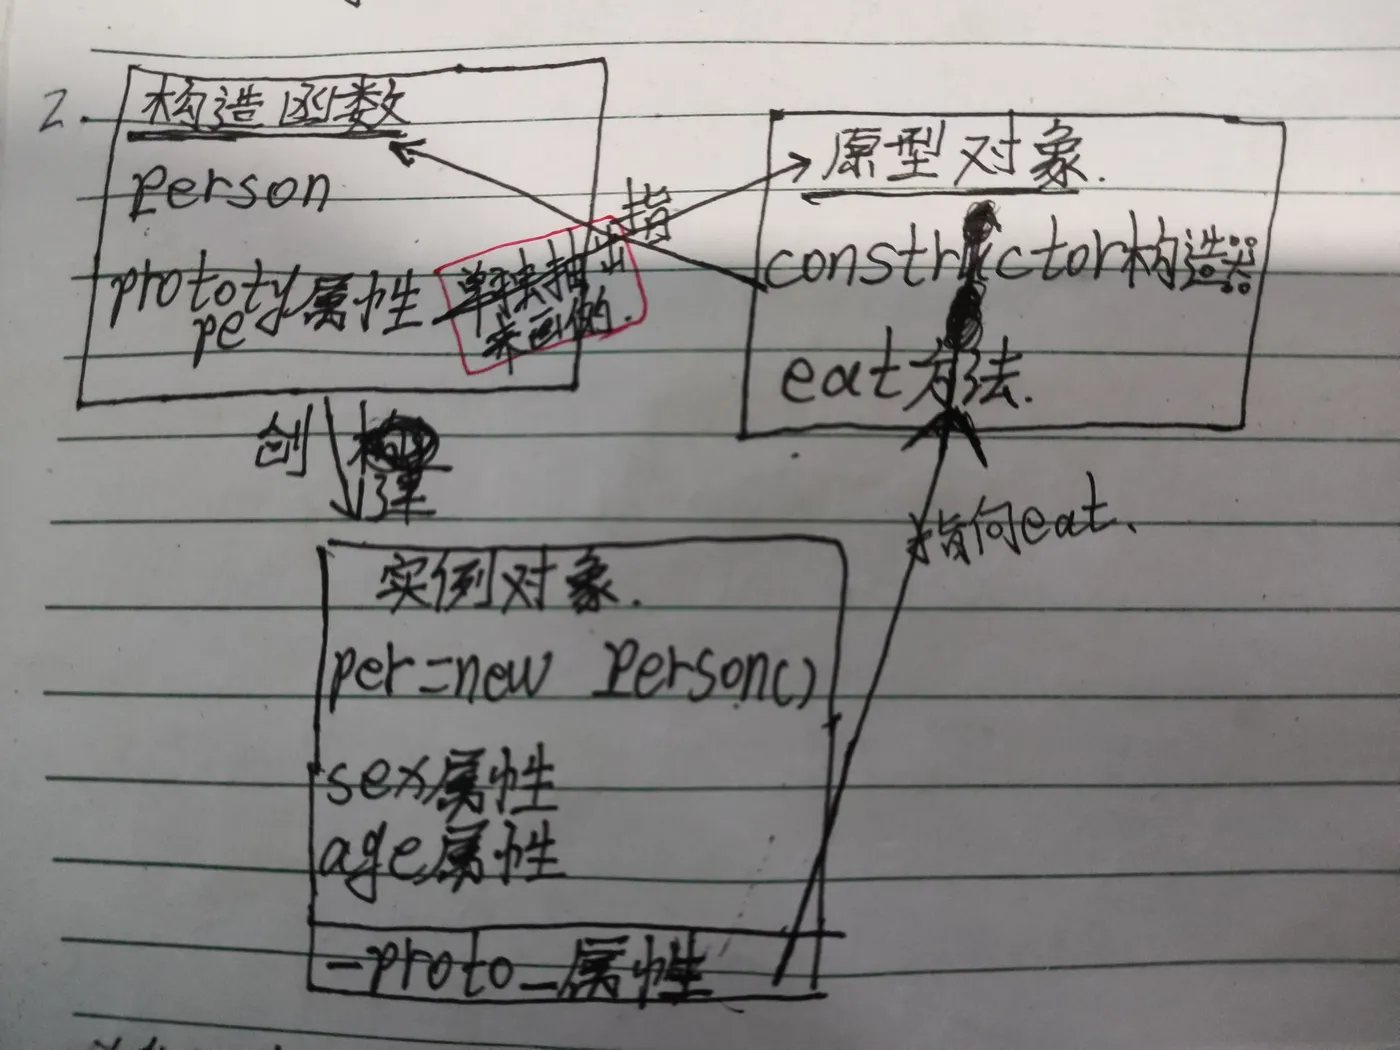 2.
构造函数
person
prototy属性
pe
单独抽出
来画的.
指
原型对象.
constructor构造器
eat方法.
创
实例对象.
per=new Person()
sex属性
age属性
_proto_属性
指向eat、